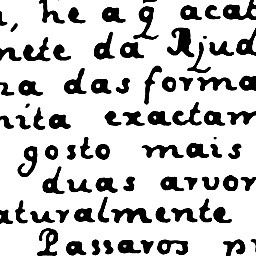 , he a q̃ acat
nete da Ajud
na das forma
nita exactam
gosto mais
duas arvor
aturalmente
Passaros pr